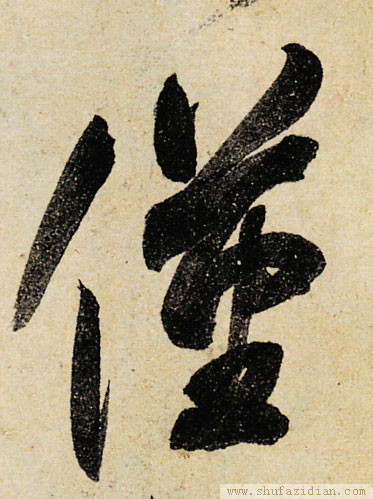 僅
www.shufazidian.com